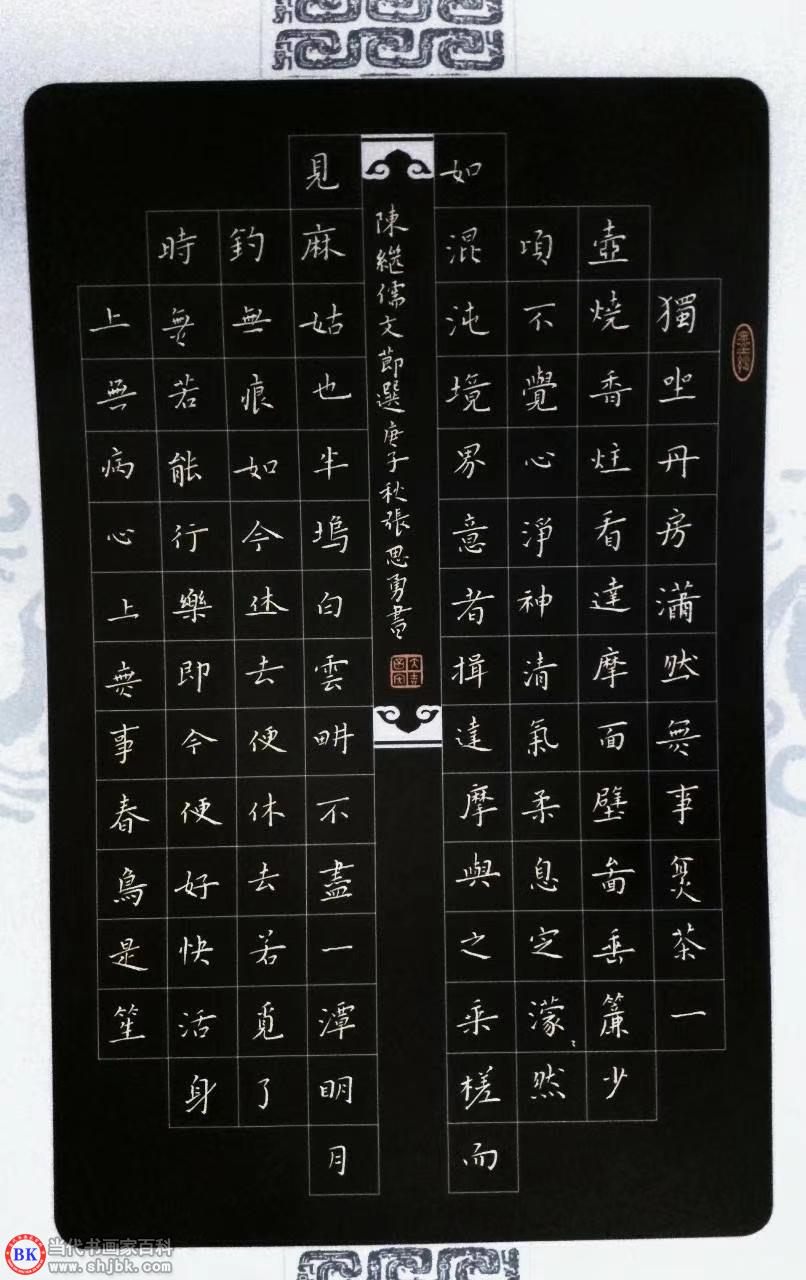 獨坐丹房瀟然無事茶一
壺燒香炷看達摩面壁啚垂簾少
頃不覺心淨神清氣柔息定濛〻然
如混沌境界意者揖達摩與之乘槎而
見麻姑也半塢白雲畊不盡一潭明月
釣無痕如今休去便休去若覓了
時無若能行樂即今便好快活身
上無病心上無事春鳥是笙
陳繼儒文節選庚子秋張思勇書
BK
当代书画家百科
www.shjbk.com